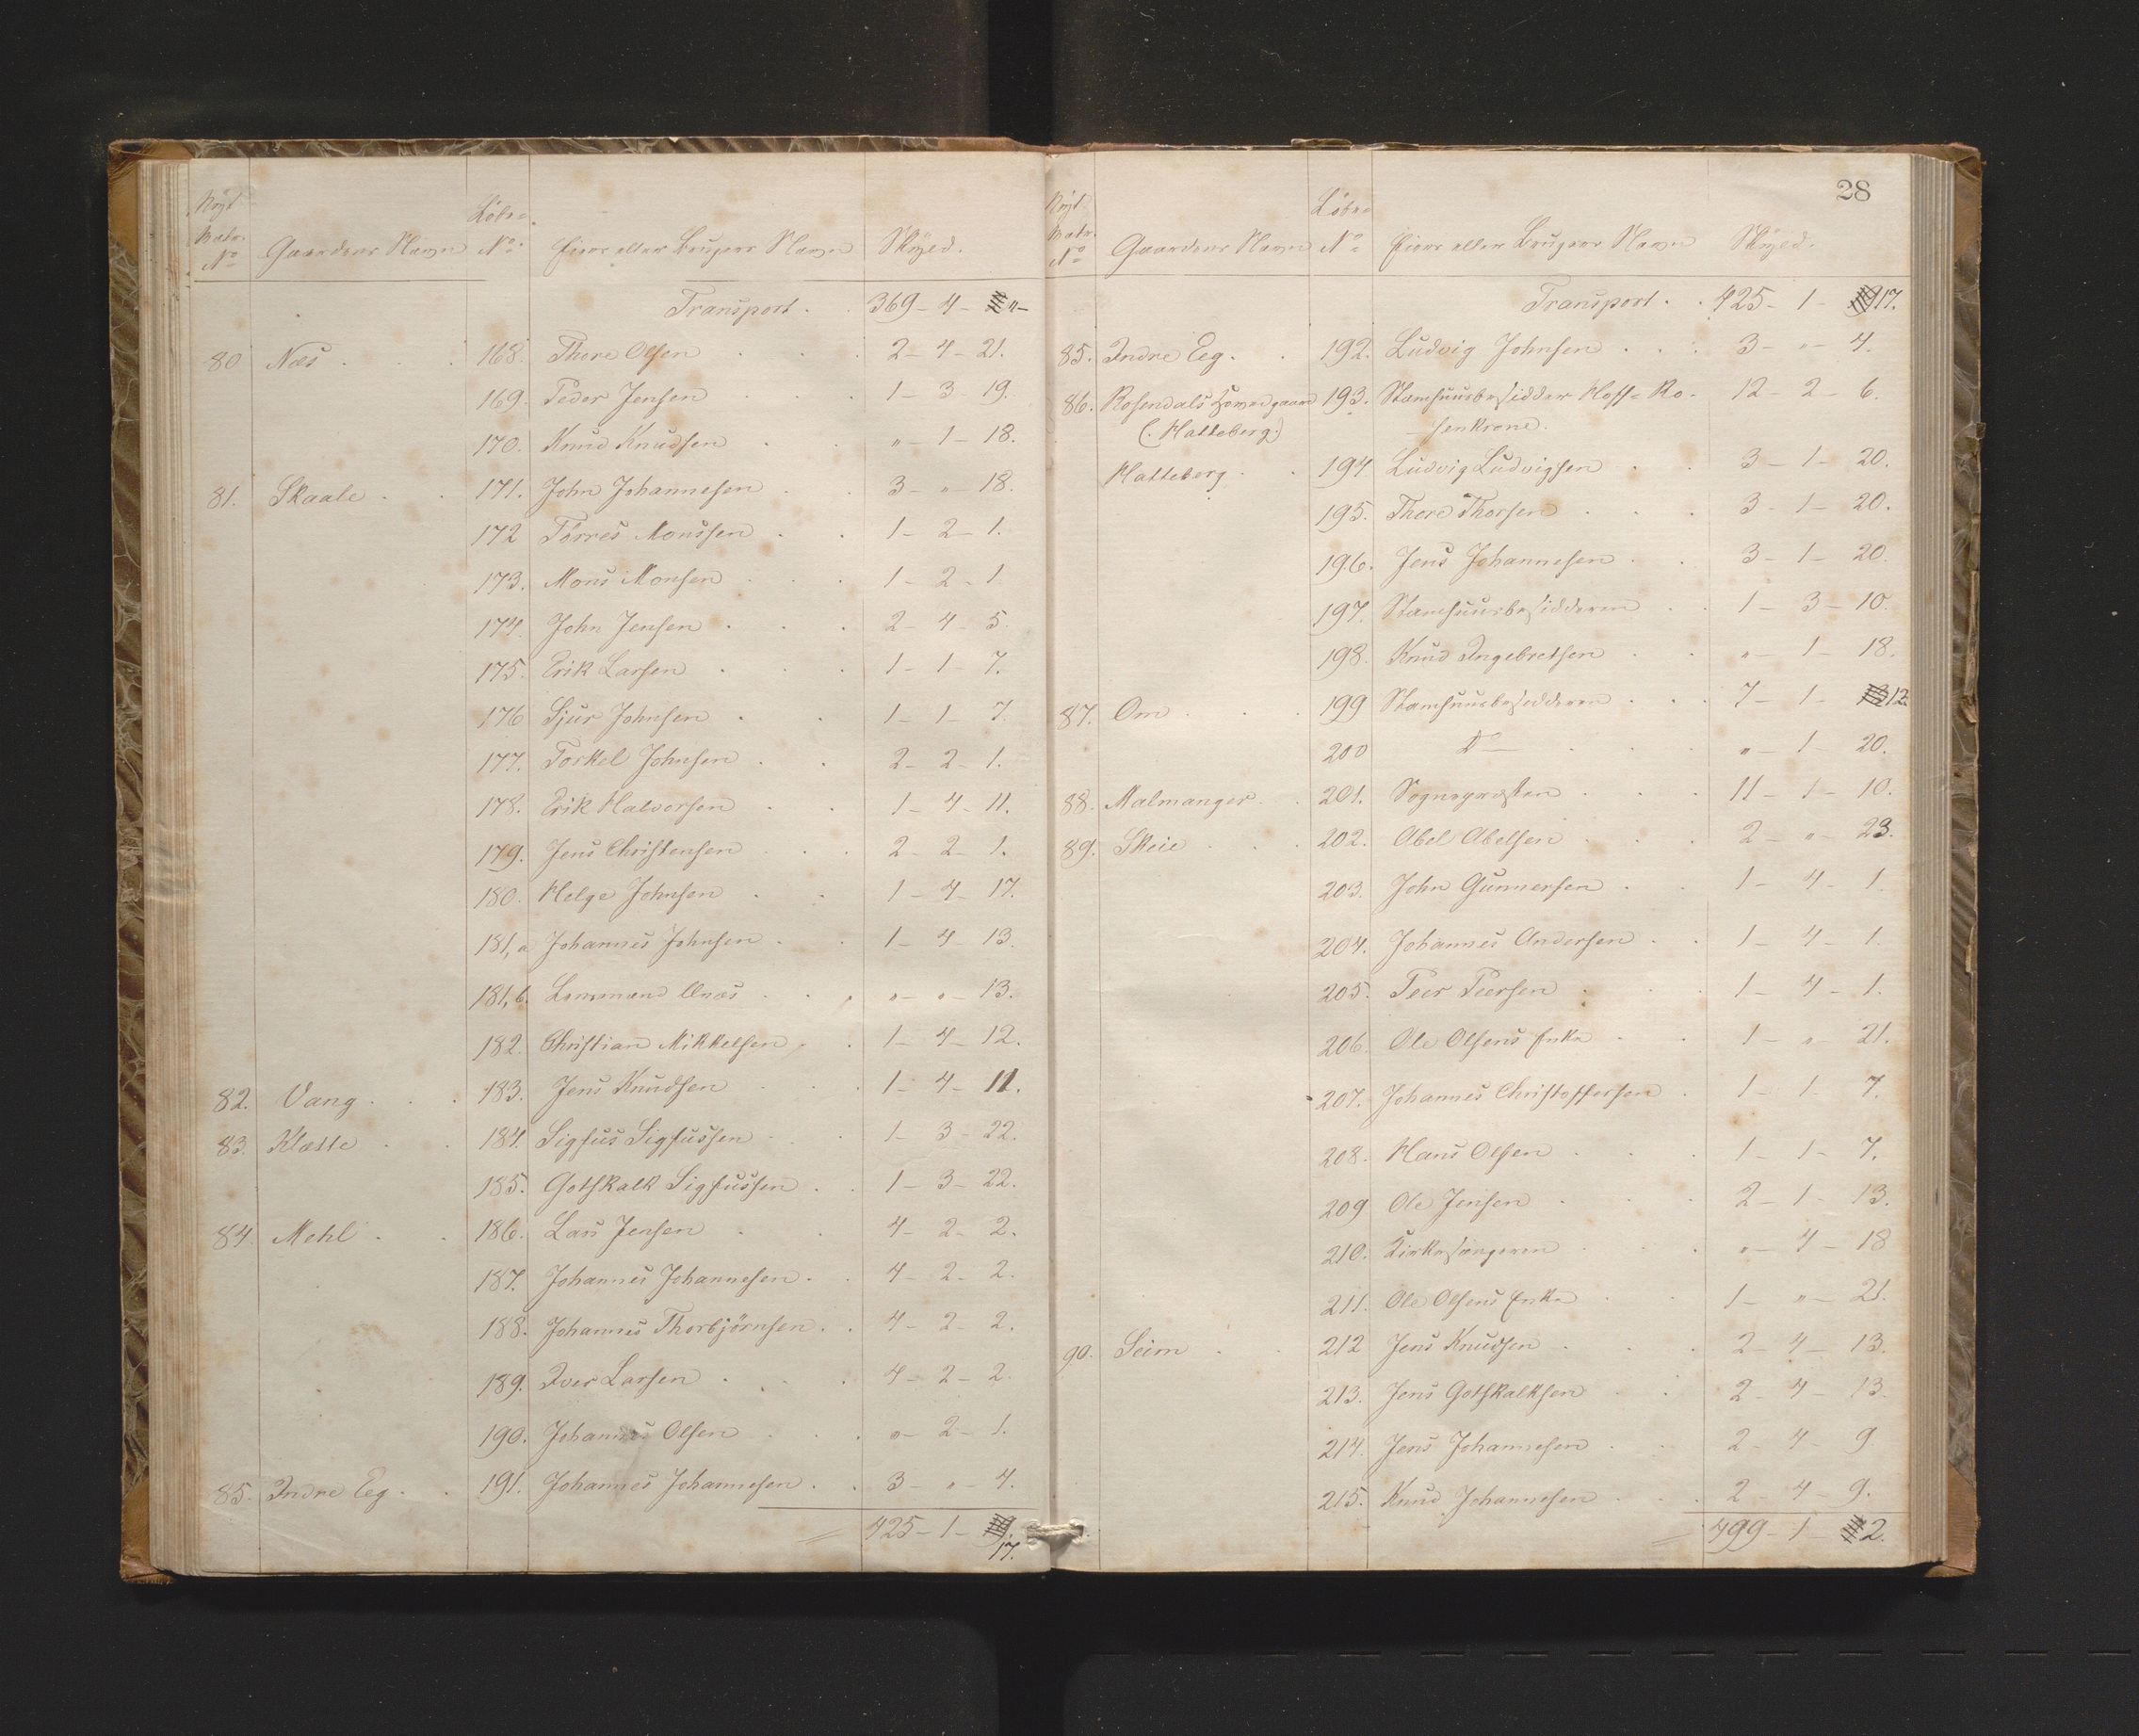 Nyt
Matr.
No
Gaardens Navn
Löbe
No
Eiers eller Brugers Navn
Skyld.
Transport . . 369 - 4 - „ -
80 Næs . . . 168. Thore Olsen . . . 2 - 4 - 21.
169. Peder Jensen . . . 1 - 3 - 19.
170. Knud Knudsen . . „ - 1 - 18.
81. Skaale . . 171. John Johannesen . . 3 - „ - 18.
172 Torres Monssen . . 1 - 2 - 1.
173. Mons Monsen . . . 1 - 2 - 1
174. John Jensen . . . 2 - 4 - 5.
175. Erik Larsen . . . 1 - 1 - 7.
176 Sjur Johnsen . . 1 - 1 - 7.
177. Torkel Johnsen . . 2 - 2 - 1.
178. Erik Halvorsen . . 1 - 4 - 11.
179. Jens Christensen . . . 2 - 2 - 1.
180. Helge Johnsen . . 1 - 4 - 17.
181,a Johannes Johnsen . . 1 - 4 - 13.
181,b. Lemmand . . „ - „ - 13.
182. Christian Mikkelsen . . 1 - 4 - 12.
82. Vang . . . 183. Jens Knudsen . . . 1 - 4 - 11.
83. Klætte . . 184. Sigfus Sigfussen . . . 1 - 3 - 22.
185. Gothkalk Sigfussen . . 1 - 3 - 22.
84 Mehl . . 186. Lars Jensen . . 4 - 2 - 2.
187. Johannes Johannesen . . 4 - 2 - 2.
188. Johannes Thorbjörnsen . . 4 - 2 - 2.
189. Iver Larsen . . . 4 - 2 - 2.
190. Johannes Olsen . . . „ - 2 - 1.
85. Indre Eeg . . 191. Johannes Johannesen . . 3 - „ - 4.
= 425 - 1 -
17.
28
Nyt
Matr.
No
Gaardens Navn
Löbe
No
Eiers eller Brugers Navn
Skyld.
Transport . . 425 - 1 - 17.
85. Indre Eeg . . 192. Ludvig Johnsen . . . 3 - „ - 4.
86. Rosendals Hovedgaard 193. Stamhuusbesidder Hoff-Ro- 12 - 2 - 6.
(: Hatteberg:) senkrone.
Hatteberg . . 194 Ludvig Ludvigsen . . 3 - 1 - 20.
195. Thore Thorsen . . . 3 - 1 - 20.
196. Jens Johannesen . . 3 - 1 - 20.
197. Stamhuusbesidderen . . 1 - 3 - 10.
198. Knud Ingebretsen . . „ - 1 - 18.
87. Om . . . 199 Stamhuusbesidderen . . . 7 - 1 - 12.
200 Do . . . „ - 1 - 20.
88. Malmanger . . 201. Sognepræsten . . . 11 - 1 - 10.
89. Skeie . . . 202. Abel Abelsen . . . 2 - „ - 23.
203. John Gunnersen . . 1 - 4 - 1.
204. Johannes Andersen . . 1 - 4 - 1.
205. Peer Peersen . . . 1 - 4 - 1.
206. Ole Olsens Enke . . 1 - „ - 21.
207. Johannes Christoffersen . 1 - 1 - 7.
208. Hans Olsen . . . 1 - 1 - 7.
209 Ole Jensen . . . 2 - 1 - 13.
210. Kirkesangeren . . . „ - 4 - 18
211. Ole Olsens Enke . . 1 - „ - 21.
90. Seim . . 212 Jens Knudsen . . . 2 - 4 - 13.
213. Jens Gothkalksen . . 2 - 4 - 13
214. Jens Johannesen . . 2 - 4 - 9
215. Knud Johannesen . . . 2 - 4 - 9.
= 499 - 1 - 2.